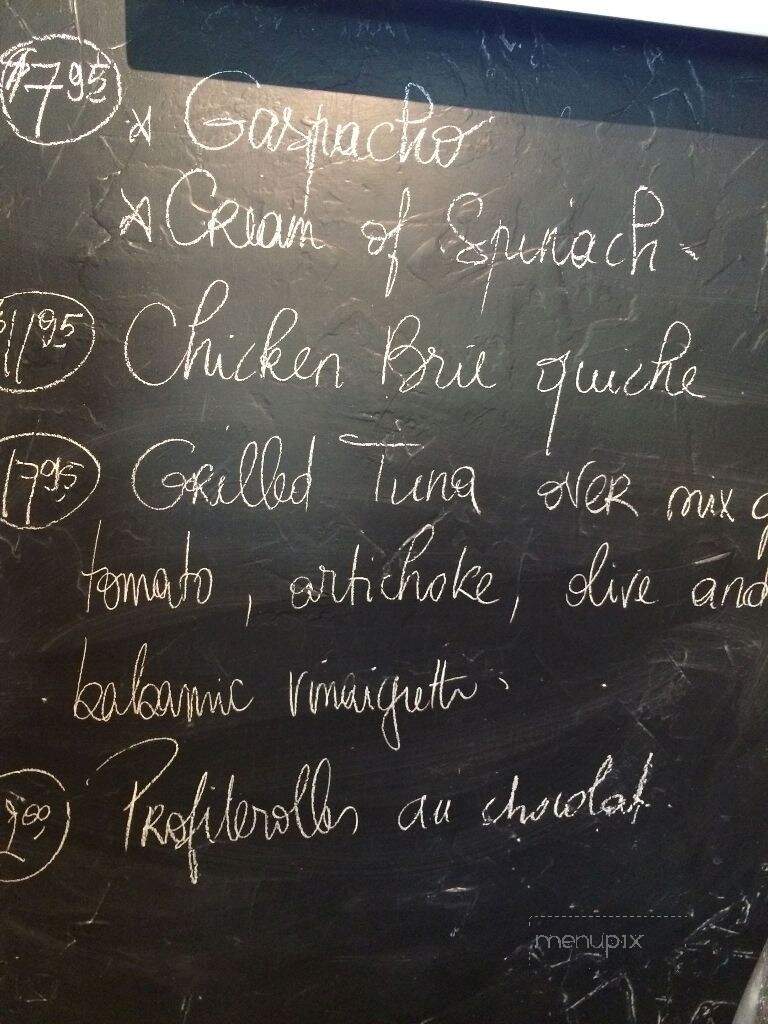 $7.95 * Gaspacho
* Cream of Spinach -
$11.95 Chicken Brie quiche
17.95 Grilled Tuna over mix g
tomato, artichoke, olive and
balsamic vinaigrette.
9.00 Profiterolles au chocolat.
menupix